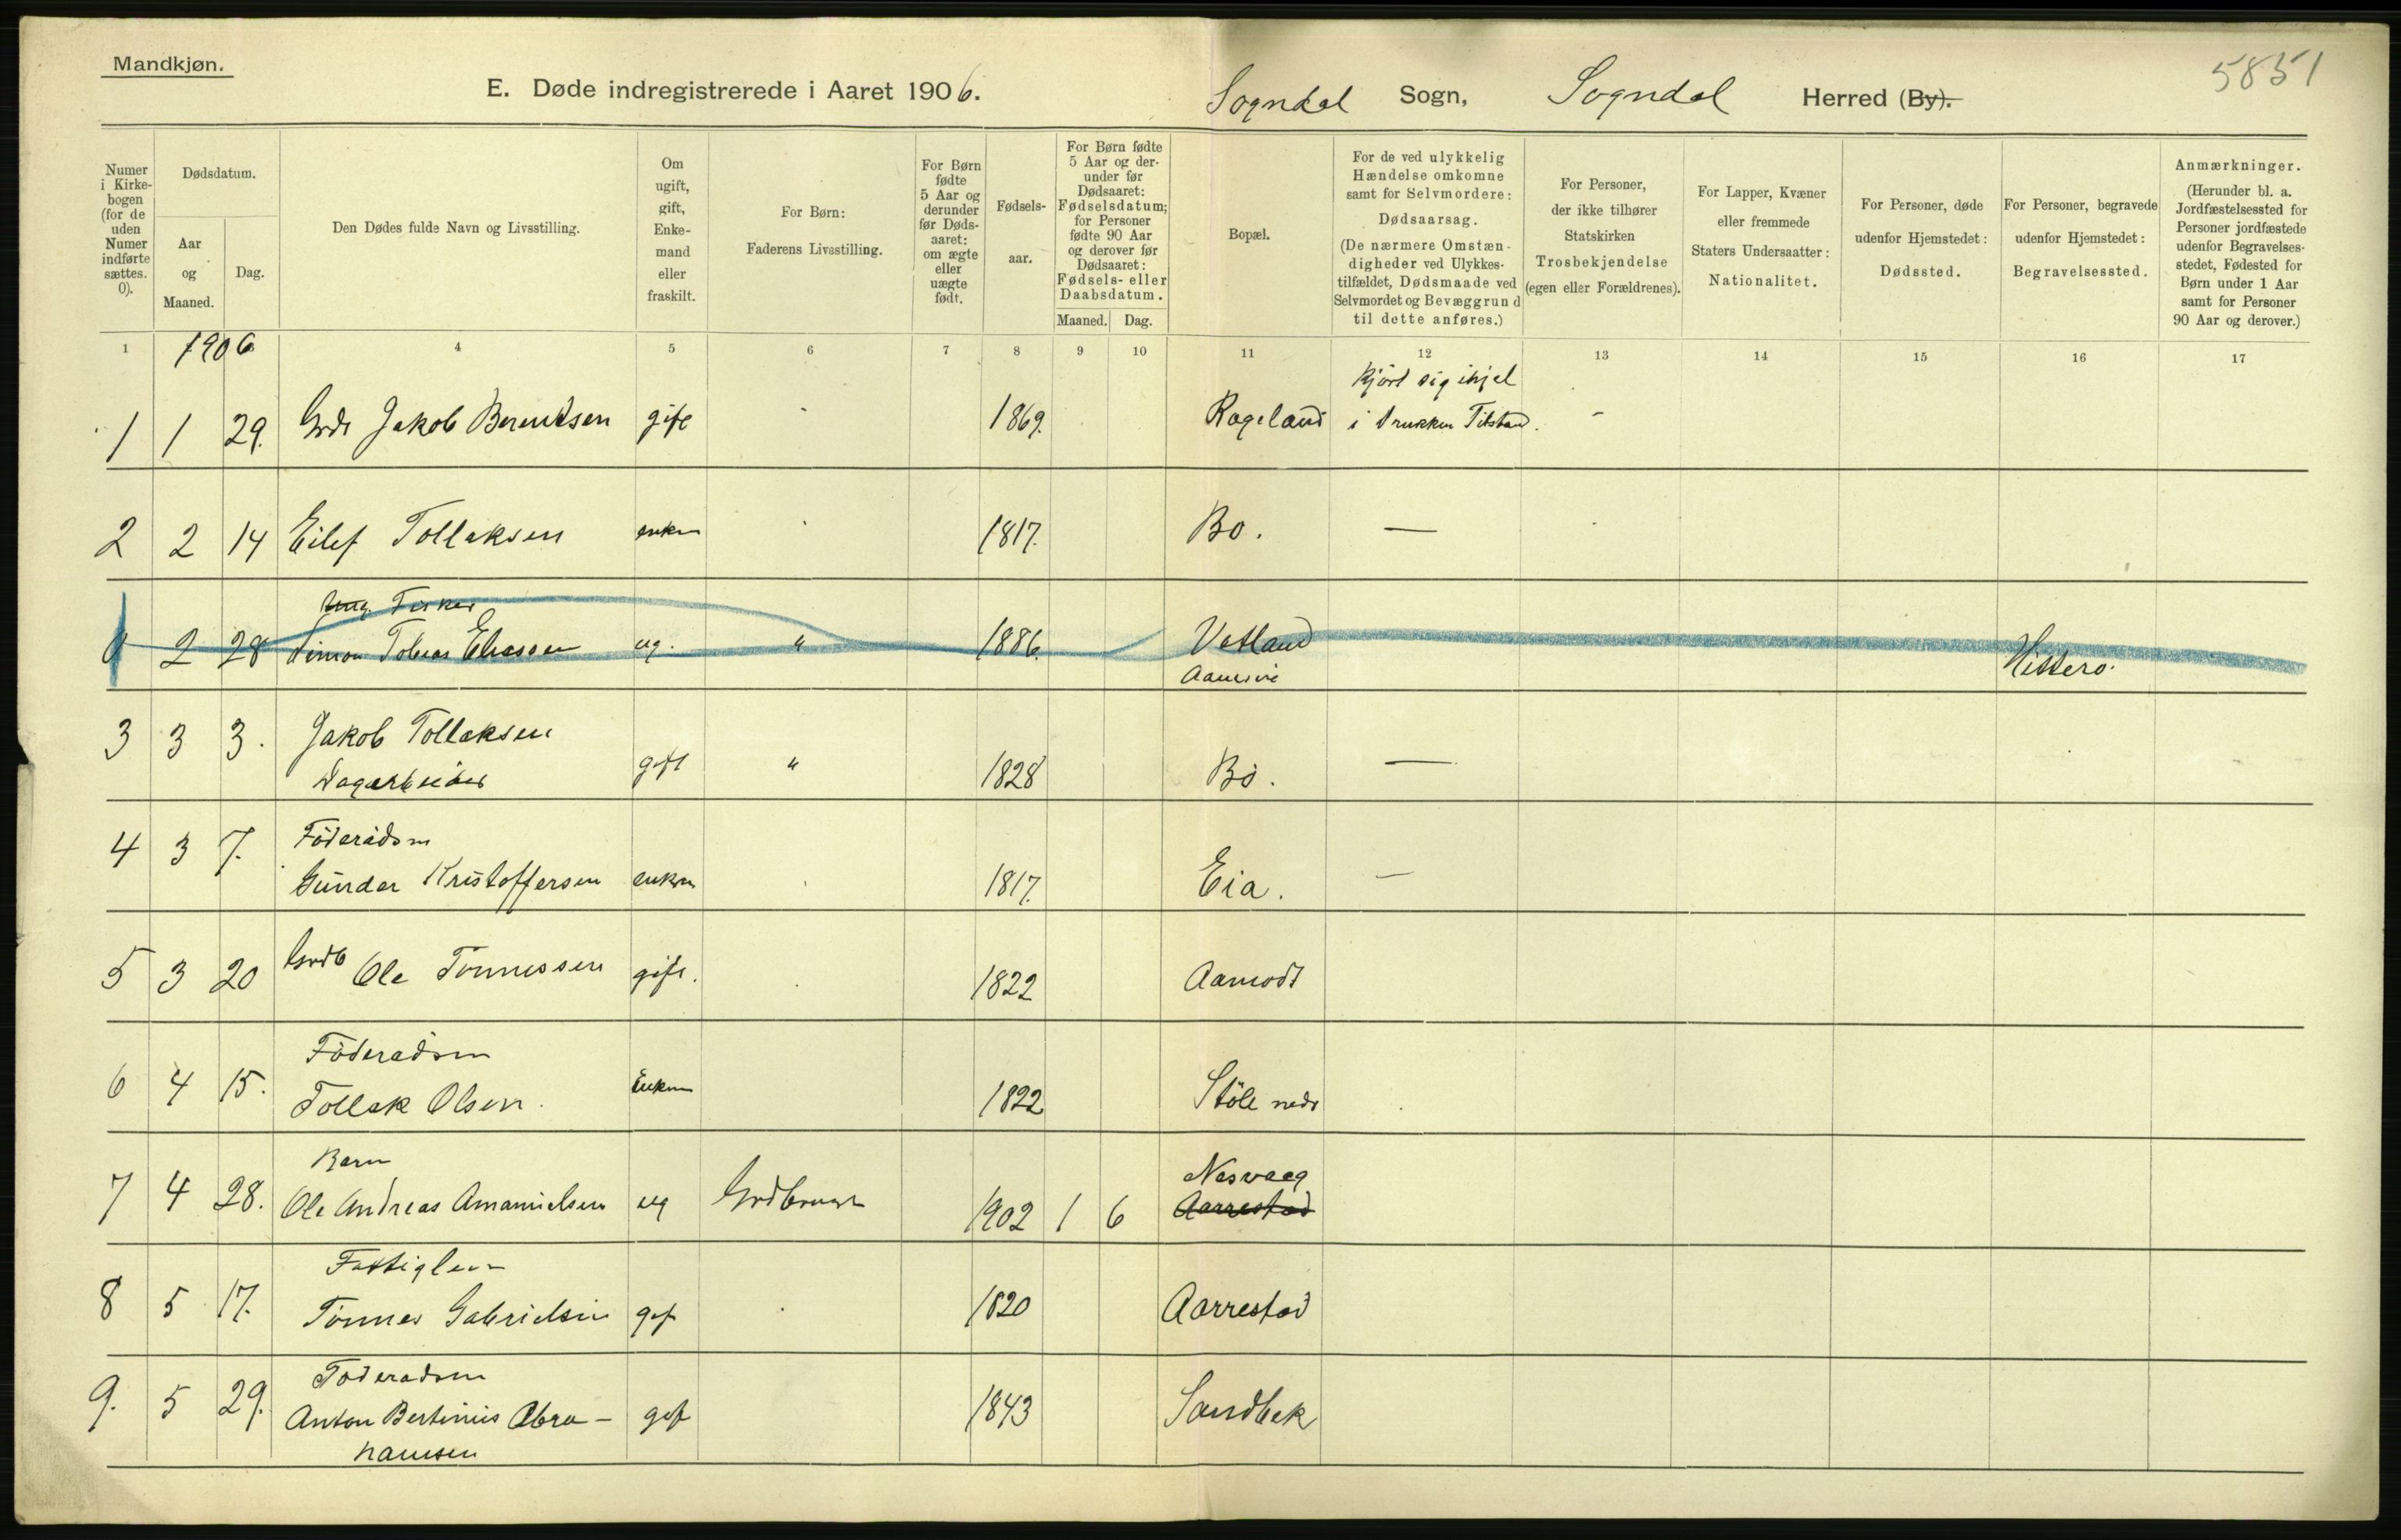 Mandkjøn.
5851
E. Døde indregistrerede i Aaret 1906. Sogndal Sogn, Sogndal Herred (By).
Numer i Kirke-bogen (for de uden Numer indførte sættes. 0).
Dødsdatum.
Aar og Maaned.
Dag.
Den Dødes fulde Navn og Livsstilling.
Om ugift, gift, Enke-mand eller fraskilt.
For Børn:
Faderens Livsstilling.
For Børn fødte 5 Aar og derunder før Døds-aaret: om ægte eller uægte født.
Fødsels-aar.
For Børn fødte 5 Aar og der-under før Dødsaaret: Fødselsdatum; for Personer fødte 90 Aar og derover før Dødsaaret: Fødsels- eller Daabsdatum.
Maaned. Dag.
Bopæl.
For de ved ulykkelig Hændelse omkomne samt for Selvmordere: Dødsaarsag. (De nærmere Omstæn-digheder ved Ulykkes-tilfældet, Dødsmaade ved Selvmordet og Bevæggrund til dette anføres.)
For Personer, der ikke tilhører Statskirken Trosbekjendelse (egen eller Forældrenes).
For Lapper, Kvæner eller fremmede Staters Undersaatter: Nationalitet.
For Personer, døde udenfor Hjemstedet: Dødssted.
For Personer, begravede udenfor Hjemstedet: Begravelsessted.
Anmærkninger. (Herunder bl. a. Jordfæstelsessted for Personer jordfæstede udenfor Begravelses-stedet, Fødested for Børn under 1 Aar samt for Personer 90 Aar og derover.)
1 1906 4 5 6 7 8 9 10 11 12 13 14 15 16 17
kjørt sig ihjel
1 1 29. Grdr Jakob Berentsen gift 1869. Rageland i drukken Tilstand. -
2 2 14 Eilef Tollaksen enkm 1817. Bø. —
Ung. Fisker
0 2 28 Simon Tobias Eliassen ug. " 1886. Vatland Hitterø.
Aamsvi
3 3 3. Jakob Tollaksen
Dagarbeider gift " 1828 Bø. —
4 3 7. Föderådsm
Gunder Kristoffersen enkm 1817. Eia. —
5 3 20 Grdb Ole Tönnessen gift. 1822 Aamodt
Föderadsm
6 4 15. Tollak Olsen. Enkm 1822 Stöle nedr
Barn Nesvaag
7 4 28. Ole Andreas Amanuelsen ug Grdbruger 1902 1 6 Aarrestad
Fattiglem
8 5 17. Tönnes Gabrielsen gift 1820 Aarrestad
Föderadsm
9. 5 29. Anton Bertinius Abra- gift 1843 Sandbek
hamsen